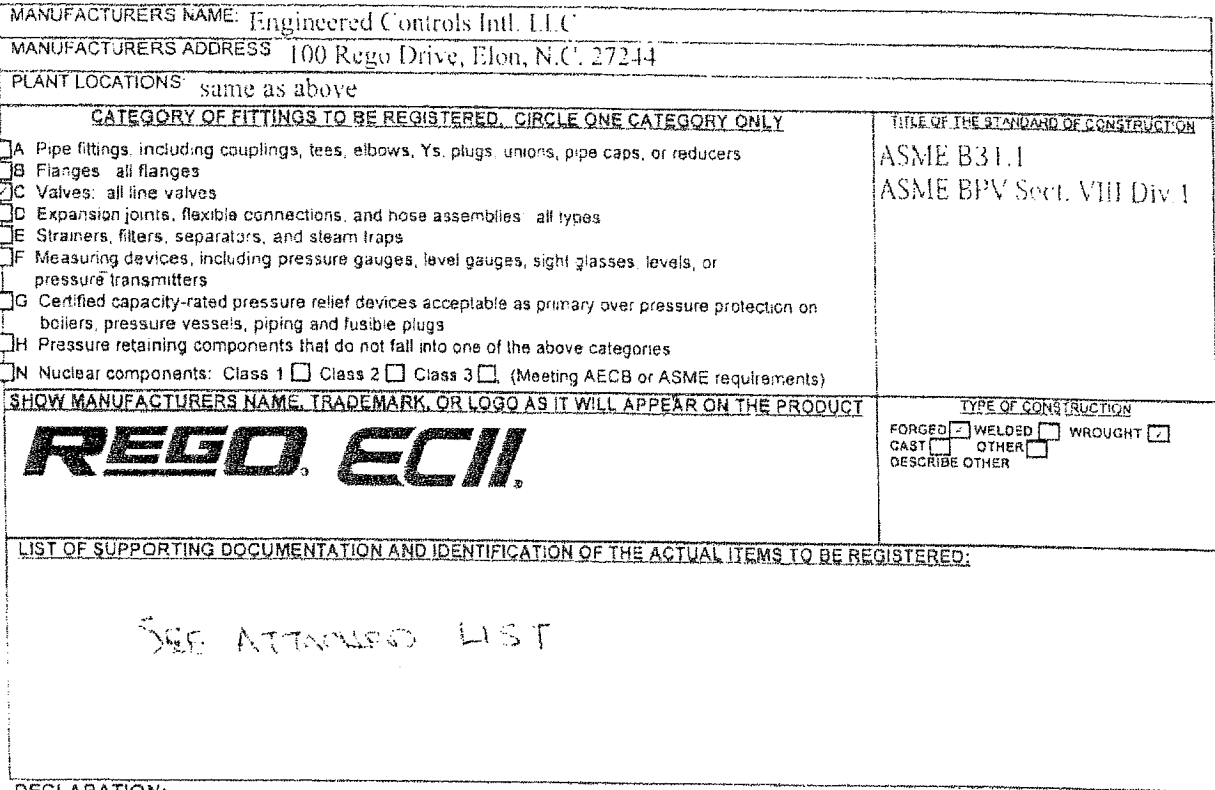 MANUFACTURERS NAME: Engineered Controls Intl. LLC
MANUFACTURERS ADDRESS 100 Rego Drive, Elon, N.C. 27244
PLANT LOCATIONS: same as above
CATEGORY OF FITTINGS TO BE REGISTERED. CIRCLE ONE CATEGORY ONLY
A Pipe fittings, including couplings, tees, elbows, Ys, plugs, unions, pipe caps, or reducers
B Flanges all flanges
C Valves: all line valves
D Expansion joints, flexible connections, and hose assemblies all types
E Strainers, filters, separators, and steam traps
F Measuring devices, including pressure gauges, level gauges, sight glasses, levels, or
pressure transmitters
G Certified capacity-rated pressure relief devices acceptable as primary over pressure protection on
boilers, pressure vessels, piping and fusible plugs
H Pressure retaining components that do not fall into one of the above categories
N Nuclear components: Class 1 Class 2 Class 3. (Meeting AECB or ASME requirements)
TITLE OF THE STANDARD OF CONSTRUCTION
ASME B31.1
ASME BPV Sect. VIII Div.1
SHOW MANUFACTURERS NAME, TRADEMARK, OR LOGO AS IT WILL APPEAR ON THE PRODUCT
REGO® ECII®
TYPE OF CONSTRUCTION
FORGED WELDED WROUGHT
CAST OTHER
DESCRIBE OTHER
LIST OF SUPPORTING DOCUMENTATION AND IDENTIFICATION OF THE ACTUAL ITEMS TO BE REGISTERED:
SEE ATTACHED LIST
DECLARATION: